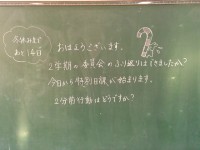 おはようございます。
2学期の委員会のふり返りはできましたか?
今日から特別日課が始まります。
2分前行動はどうですか?
あと 14日